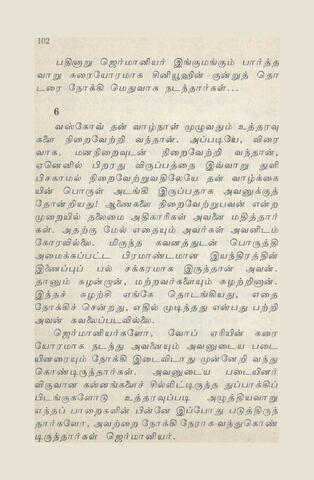 102
பதினாறு ஜெர்மானியர் இங்குமங்கும் பார்த்த
வாறு கரையோரமாக சினியூஹின் குன்றுத் தொ
டரை நோக்கி மெதுவாக நடந்தார்கள்...
6
வஸ்கோவ் தன் வாழ்நாள் முழுவதும் உத்தரவு
களை நிறைவேற்றி வந்தான். அப்படியே, விரை
வாக, மனநிறைவுடன் நிறைவேற்றி வந்தான்,
ஏனெனில் பிறரது விருப்பத்தை இவ்வாறு துளி
பிசகாமல் நிறைவேற்றுவதிலேயே தன் வாழ்க்கை
யின் பொருள் அடங்கி இருப்பதாக அவனுக்குத்
தோன்றியது! ஆணைகளை நிறைவேற்றுபவன் என்ற
முறையில் தலைமை அதிகாரிகள் அவனை மதித்தார்
கள். அதற்கு மேல் எதையும் அவர்கள் அவனிடம்
கோரவில்லை. மிகுந்த கவனத்துடன் பொருத்தி
அமைக்கப்பட்ட பிரமாண்டமான இயந்திரத்தின்
இணைப்புப் பல் சக்கரமாக இருந்தான் அவன்.
தானும் சுழன்றான், மற்றவர்களையும் சுழற்றினான்.
இந்தச் சுழற்சி எங்கே தொடங்கியது, எதை
நோக்கிச் சென்றது, எதில் முடிந்தது என்பது பற்றி
அவன் கவலைப்படவில்லை.
ஜெர்மானியர்களோ, வோப் ஏரியின் கரை
யோரமாக நடந்து அவனையும் அவனுடைய படை
யினரையும் நோக்கி இடைவிடாது முன்னேறி வந்து
கொண்டிருந்தார்கள். அவனுடைய படையினர்
விகுவான கன்னங்களைச் சில்லிட்டிருந்த துப்பாக்கிப்
பிடங்குகளோடு உத்தரவுப்படி அழுத்தியவாறு
எந்தப் பாறைகளின் பின்னே இப்போது படுத்திருந்
தார்களோ, அவற்றை நோக்கி நேராக வந்துகொண்
டிருந்தார்கள் ஜெர்மானியர்.